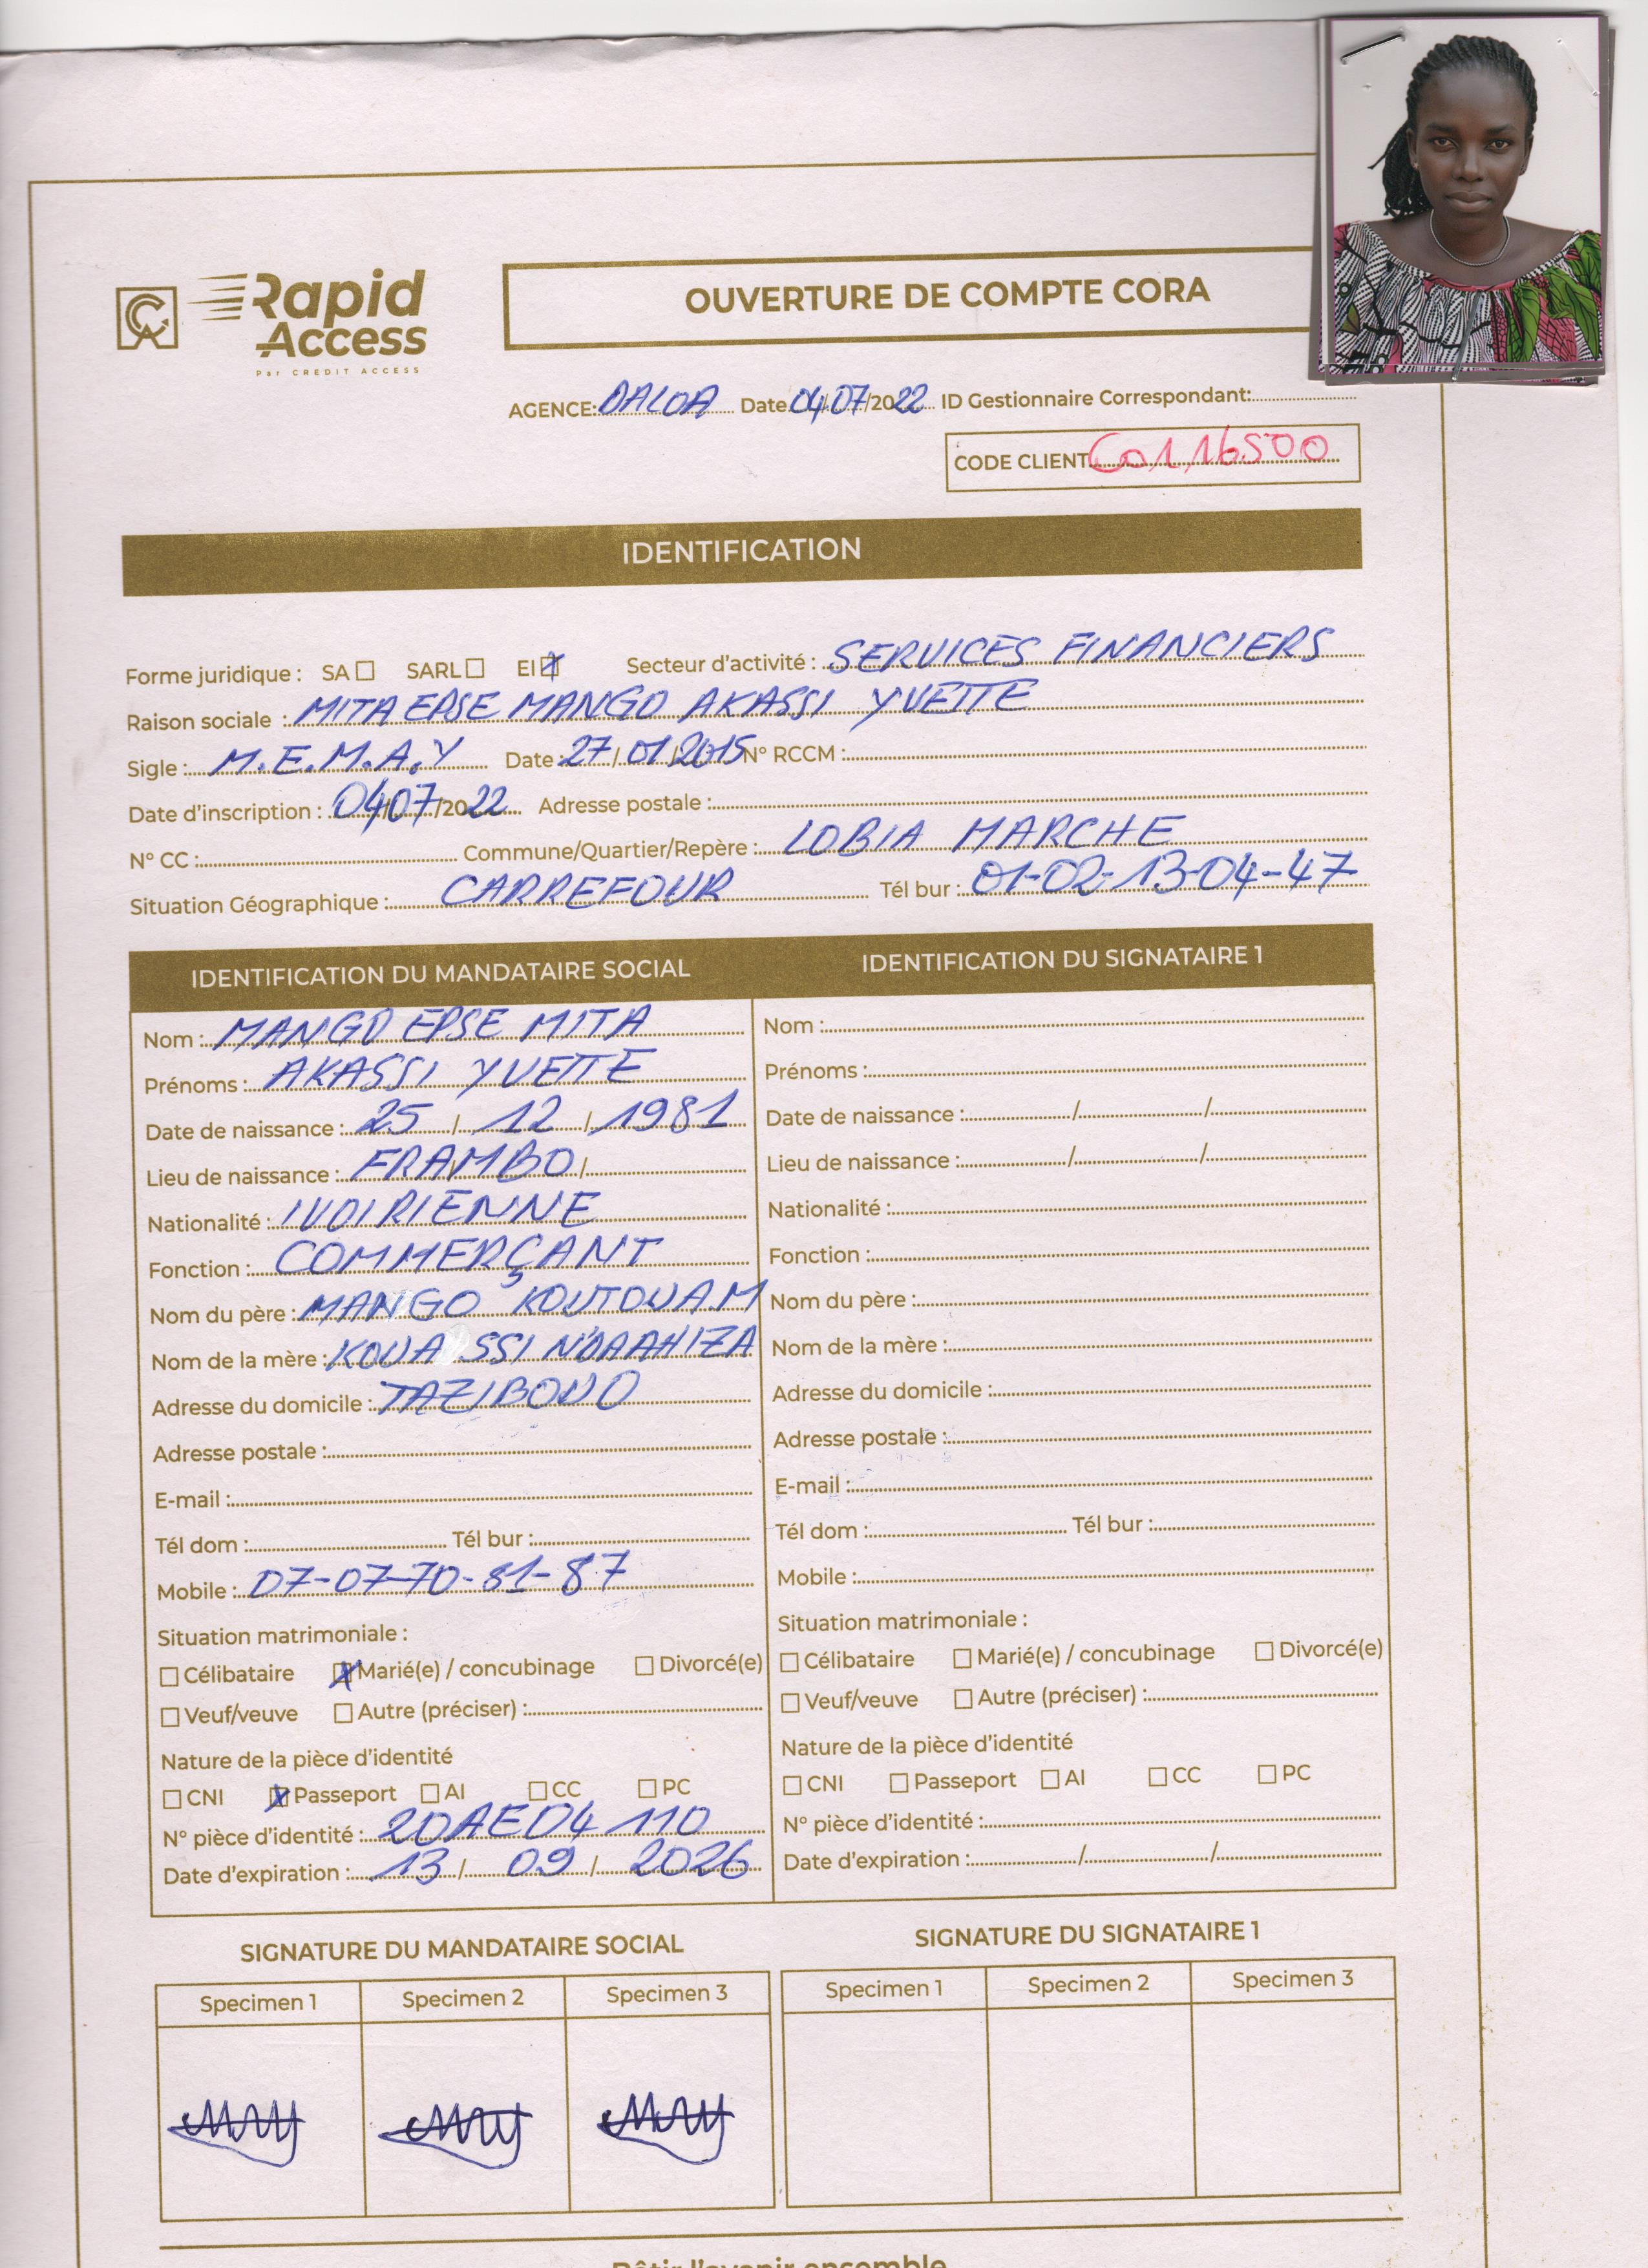 Rapid
Access
Par CREDIT ACCESS
OUVERTURE DE COMPTE CORA
AGENCE: DALOA Date 04/07/2022 ID Gestionnaire Correspondant:
CODE CLIENT C0116500
IDENTIFICATION
Forme juridique : SA SARL EI Secteur d'activité : SERVICES FINANCIERS
Raison sociale : MITA EPSE MANGO AKASSI YVETTE
Sigle : M.E.M.A.Y Date 27/01/2015 N° RCCM :
Date d'inscription : 04/07/2022 Adresse postale :
N° CC : Commune/Quartier/Repère : LOBIA MARCHE
Situation Géographique : CARREFOUR Tél bur : 01-02-13-04-47
IDENTIFICATION DU MANDATAIRE SOCIAL
Nom : MANGO EPSE MITA
Prénoms : AKASSI YVETTE
Date de naissance : 25 / 12 / 1981
Lieu de naissance : FRAMBO /
Nationalité : IVOIRIENNE
Fonction : COMMERÇANT
Nom du père : MANGO KOUTOUA.M
Nom de la mère : KOUA SSI
Adresse du domicile : TAZIBOUO
Adresse postale :
E-mail :
Tél dom : Tél bur :
Mobile : 07-07-70-81-87
Situation matrimoniale :
Célibataire Marié(e) / concubinage Divorcé(e)
Veuf/veuve Autre (préciser) :
Nature de la pièce d'identité
CNI Passeport AI CC PC
N° pièce d'identité : 20AE04 110
Date d'expiration : 13 / 09 / 2026
IDENTIFICATION DU SIGNATAIRE 1
Nom :
Prénoms :
Date de naissance : / /
Lieu de naissance : / /
Nationalité :
Fonction :
Nom du père :
Nom de la mère :
Adresse du domicile :
Adresse postale :
E-mail :
Tél dom : Tél bur :
Mobile :
Situation matrimoniale :
Célibataire Marié(e) / concubinage Divorcé(e)
Veuf/veuve Autre (préciser) :
Nature de la pièce d'identité
CNI Passeport AI CC PC
N° pièce d'identité :
Date d'expiration : / /
SIGNATURE DU MANDATAIRE SOCIAL
Specimen 1 Specimen 2 Specimen 3
SIGNATURE DU SIGNATAIRE 1
Specimen 1 Specimen 2 Specimen 3
Bâtir l'avenir ensemble